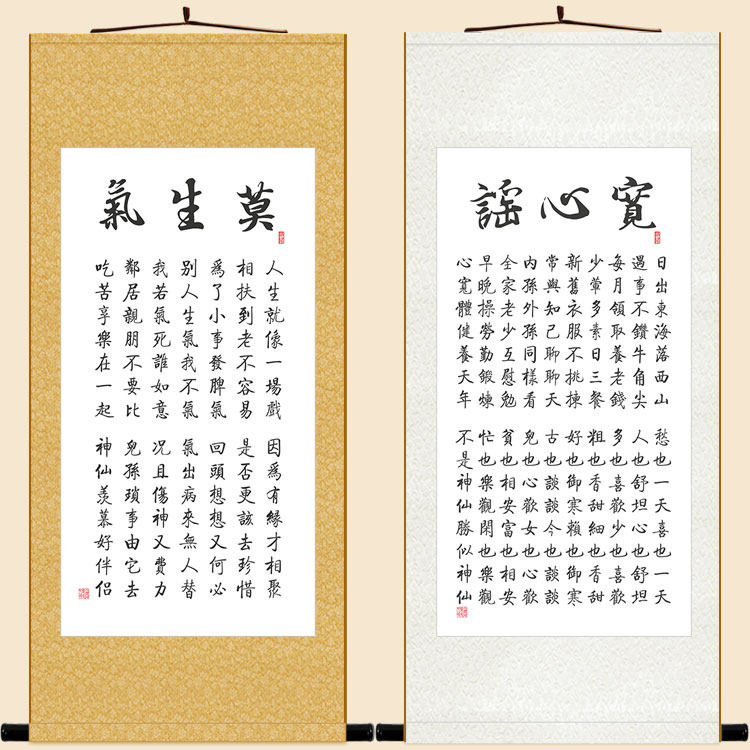 莫生氣
人生就像一場戲
因爲有緣才相聚
相扶到老不容易
是否更該去珍惜
爲了小事發脾氣
回頭想想又何必
别人生氣我不氣
氣出病來無人替
我若氣死誰如意
况且傷神又費力
鄰居親朋不要比
兒孫瑣事由它去
吃苦享樂在一起
神仙羨慕好伴侣
寬心謡
日出東海落西山
愁也一天喜也一天
遇事不鑽牛角尖
人也舒坦心也舒坦
每月領取養老錢
多也喜歡少也喜歡
少葷多素日三餐
粗也香甜細也香甜
新舊衣服不挑揀
好也御寒賴也御寒
常與知己聊聊天
古也談談今也談談
内孫外孫同樣看
兒也心歡女也心歡
全家老少互慰勉
貧也相安富也相安
早晚操勞勤鍛煉
忙也樂觀閑也樂觀
心寬體健養天年
不是神仙勝似神仙